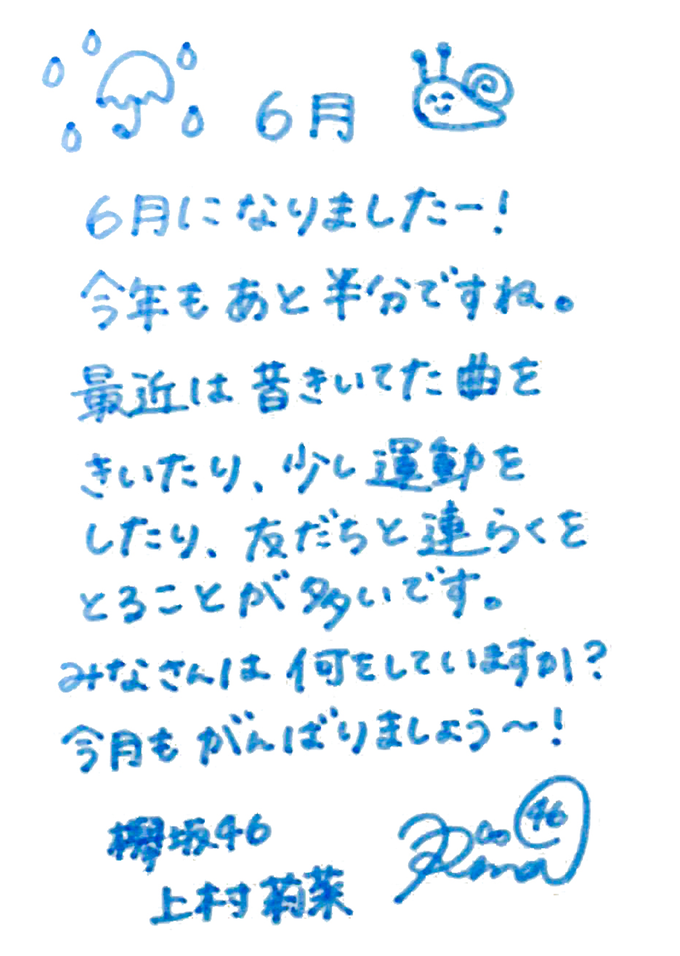 6月
6月になりましたー!
今年もあと半分ですね。
最近は昔きいてた曲を
きいたり、少し運動を
したり、友だちと連らくを
とることが多いです。
みなさんは何をしていますか?
今月もがんばりましょう〜!
欅坂46
上村莉菜
Rina
46